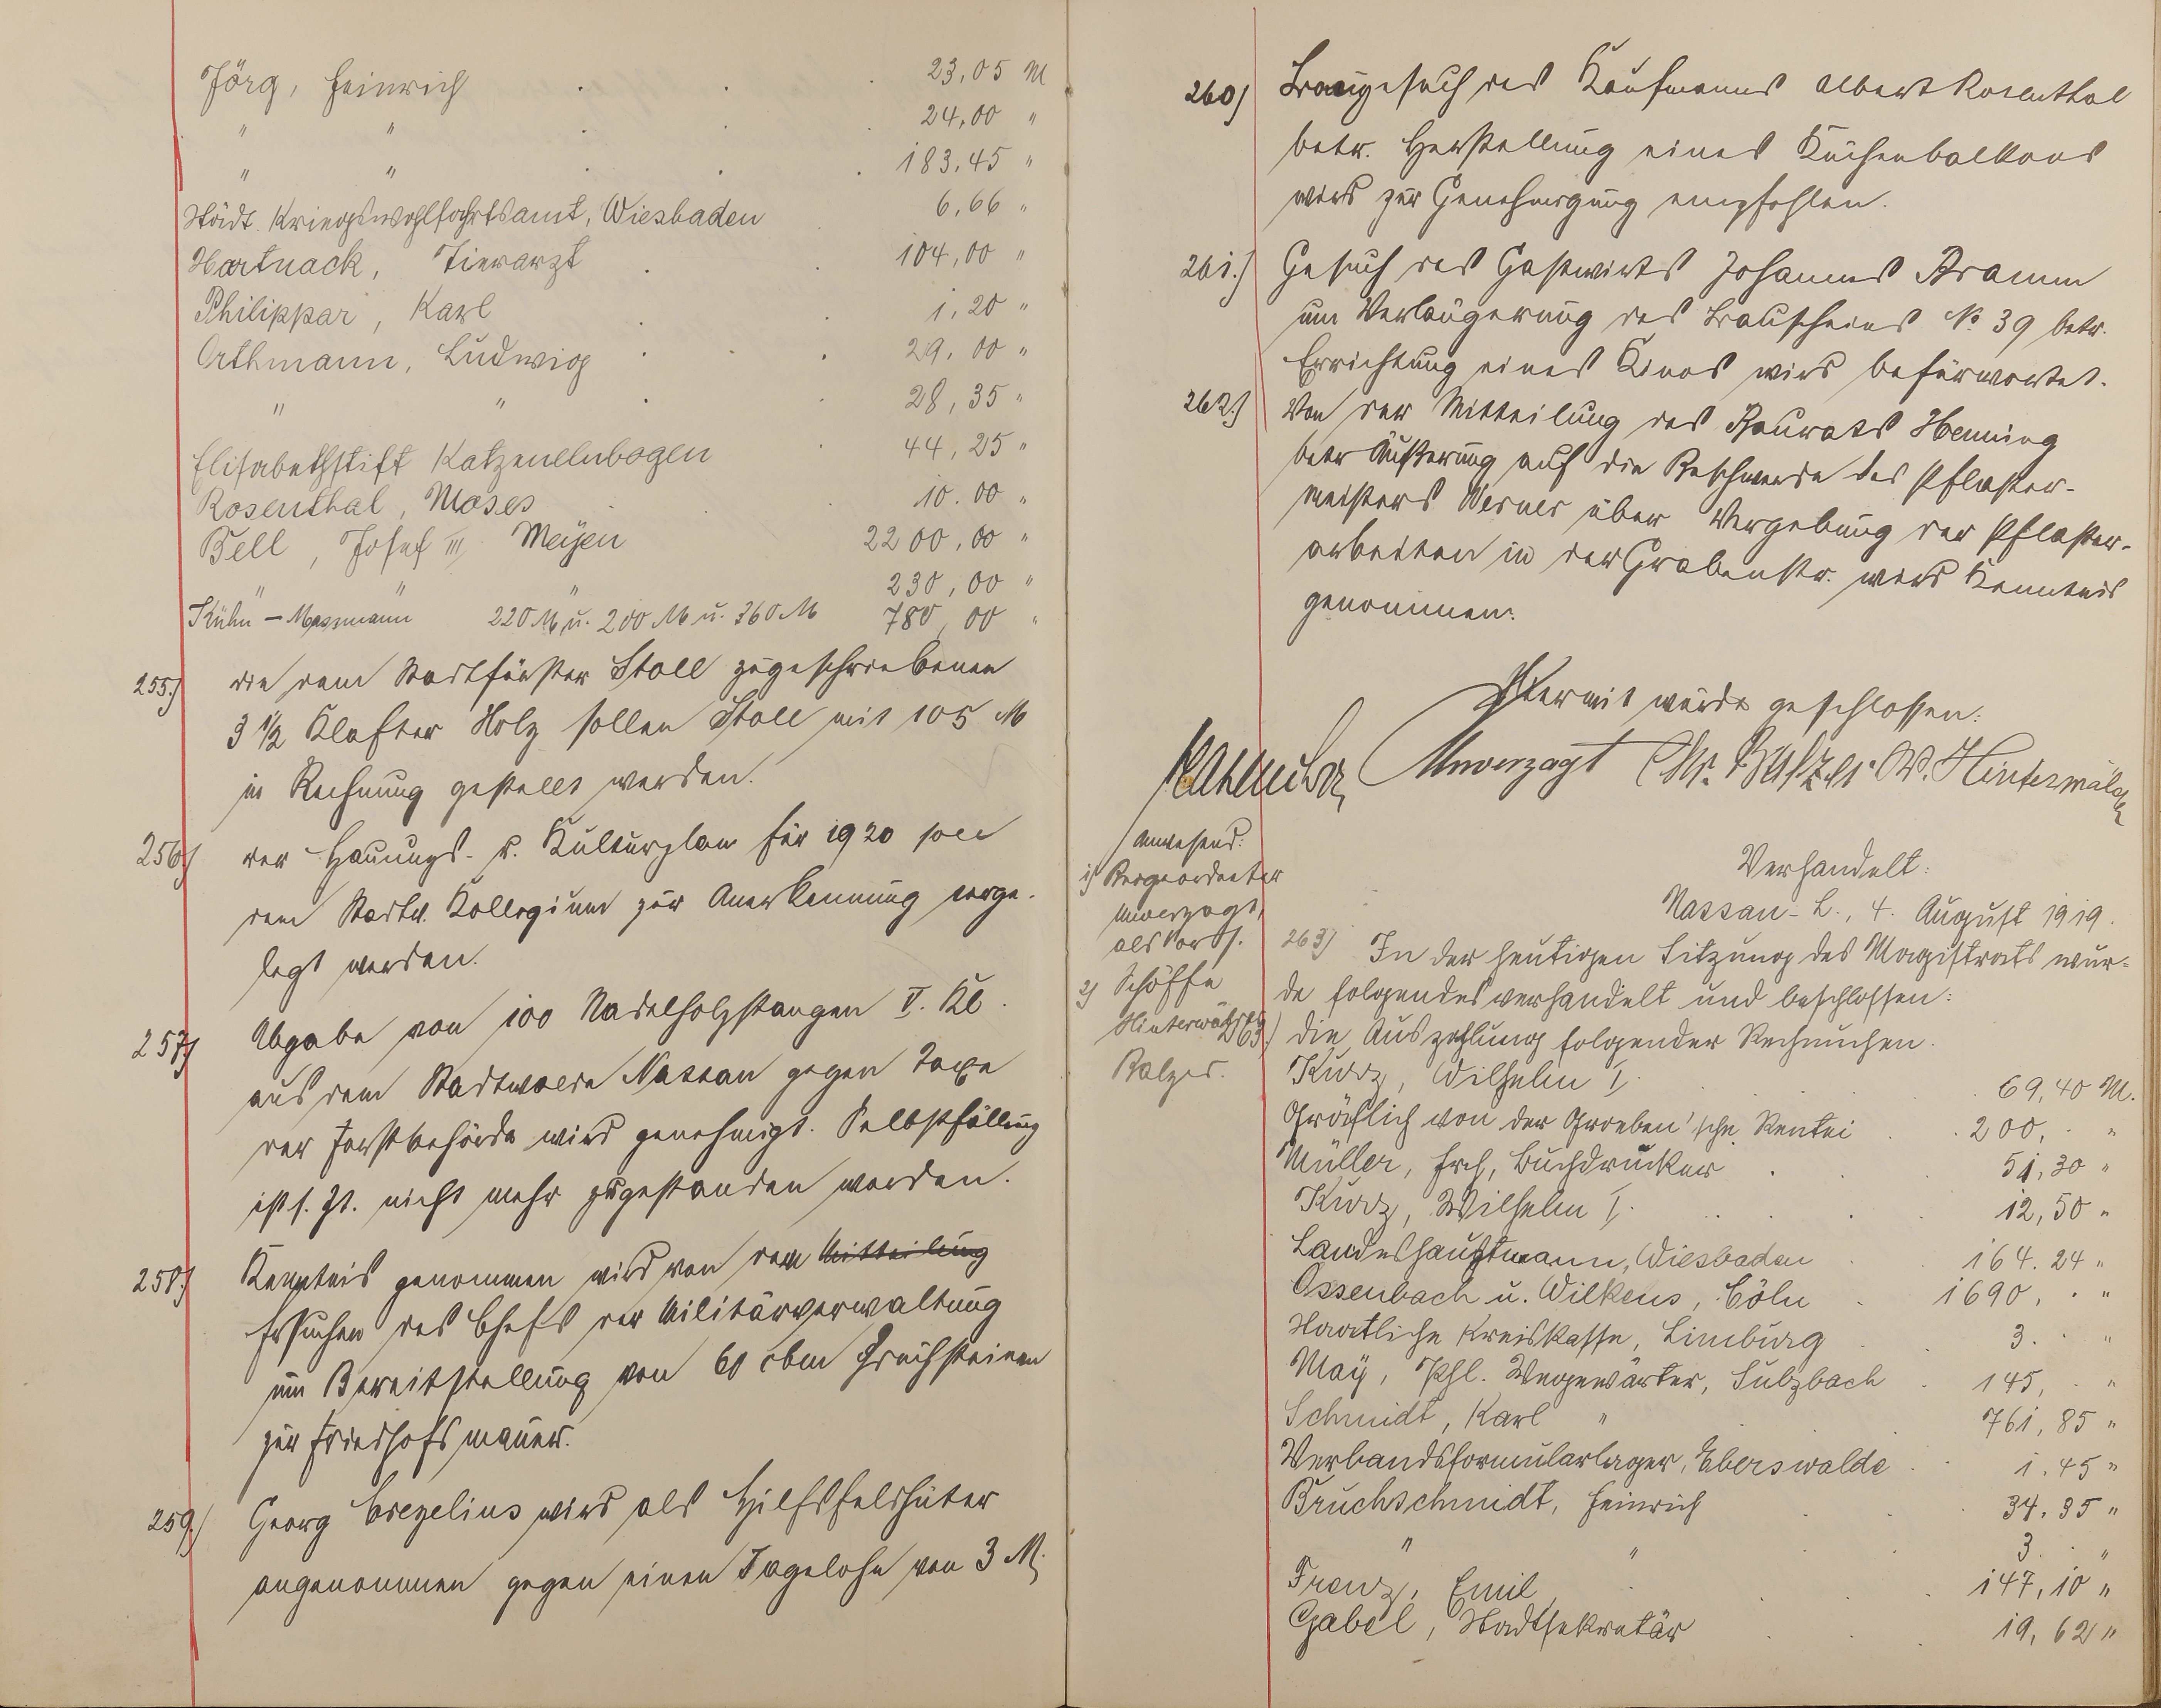 Jörg, Heinrich . . . 23,05 M
" " . . . 24,00 "
" " . . . 183,45 "
Städt. Kriegswohlfahrtsamt, Wiesbaden . 6,66 "
Hartnack, Tierarzt . . 104,00 "
Philippar, Karl . . 1,20 "
Orthmann, Ludwig . . . 29,00 "
" " . . 28,35 "
Elisabethstift Katzenelnbogen . 44,25 "
Rosenthal, Moses . . 10.00 "
Bell, Josef III, Meyen 2200,00 "
" " " 230,00 "
Kühn - Massmann 220 M u. 200 M u. 360 M 780,00 "
255.) die dem Stadtförster Stoll zugeschriebenen
3 ½ Klafter Holz sollen Stoll mit 105 M
in Rechnung gestellt werden.
256.) der Hauungs- u. Kulturplan für 1920 soll
dem Stadtv. Kollegium zur Anerkennung vorge-
legt werden.
257.) Abgabe von 100 Nadelholzstangen V. Kl.
aus dem Stadtwalde Nassau gegen Taxe
der Forstbehörde wird genehmigt. Selbstfällung
ist s. Zt. nicht mehr zugestanden worden.
258.) Kenntnis genommen wird von dem Mitteilung
Ersuchen des Chefs der Militärverwaltung
um Bereitstellung von 60 cbm Bruchsteinen
zur Friedhofsmauer.
259.) Georg Crezelius wird als Hilfsfeldhüter
angenommen gegen einen Tagelohn von 3 M.
260) Baugesuch des Kaufmanns Albert Rosenthal
betr. Herstellung eines Küchenbalkons
wird zur Genehmigung empfohlen.
261.) Gesuch des Gastwirts Johannes Bramm
um Verlängerung des Bauscheins No 39 betr.
Errichtung eines Kinos wird befürwortet.
262.) Von der Mitteilung des Baurats Henning
betr Äußerung auf die Beschwerde des Pflaster-
meisters Werner über Vergebung der Pflaster-
arbeiten in der Grabenstr. wird Kenntnis
genommen.
Hiermit wurde geschlossen:
Unverzagt Chr. Balzer. W. Hinterwälder
Anwesend:
1) Beigeordneter
Unverzagt,
als Vors.
2) Schöffe
Hinterwälder
Balzer.
Verhandelt:
Nassau-L., 4. August 1919.
263) In der heutigen Sitzung des Magistrats wur-
de folgendes verhandelt und beschlossen:
263.) die Auszahlung folgender Rechnungen.
Kurz, Wilhelm I, . . 69,40 M.
Gräflich von der Groeben'sche Rentei . . 200, . "
Müller, Hch, Buchdrucker . . 51,30 "
Kurz, Wilhelm I, . . . . 12,50 "
Landeshauptmann, Wiesbaden . . 164.24 "
Ossenbach u. Wilkens, Cöln . 1690, . "
Staatliche Kreiskasse, Limburg . . 3. . "
May, Phl. Wegewärter, Sulzbach . 145, . "
Schmidt, Karl " . . 761,85 "
Verbandsformularlager, Eberswalde . . 1.45 "
Bruchschmidt, Heinrich . . . 34.35 "
" " . . 3 . "
Franz, Emil . . . 147,10 "
Gabel, Stadtsekretär . . . 19,62 "